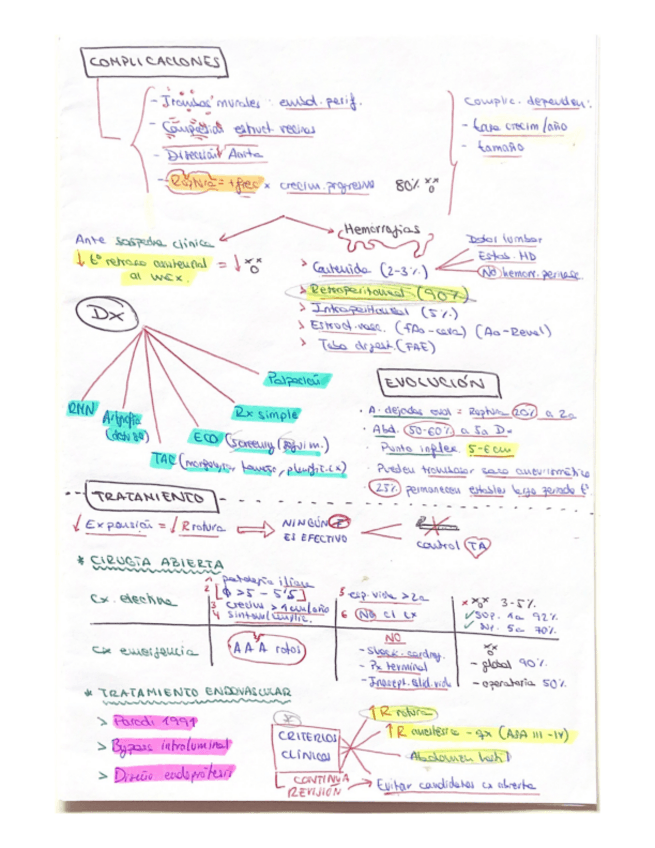 COMPLICACIONES
- Trombos murales: embol. perif.
- Compresión estruct. vecinas
- Disección Aorta
- Rotura = + frec x crecim. progresivo 80%
Complic. dependen:
- tasa crecim/año
- tamaño
Ante sospecha clínica
↓ tº retraso asistencial = ↓
al
Hemorragias
> Contenida (2-3%)
Dolor lumbar
Estab. HD
NO hemorr.
> Retroperitoneal (90%)
> Intraperitoneal (5%)
> Estruct. vasc. (fAo-cava) (Ao-Renal)
> Tubo digest. (FAE)
DX
Palpación
Rx simple
ECO (Screening / seguim.)
TAC (morfología, tamaño, planific. cx)
RMN
EVOLUCIÓN
· A. dejados evol = Rotura 20% a 2a
· Abd. 50-60% a 5a Dx
· Punto inflex. 5-6 cm
· Pueden trombosar saco aneurismático
· 25% permanecen estables largo periodo tº
TRATAMIENTO
↓ Expansión = ↓ R rotura
NINGÚN
ES EFECTIVO
control TA
* CIRUGÍA ABIERTA
cx. electiva
1 patología ilíaca
2 Φ >5 - 5'5
3 crecim > 1 cm/año
4
5 esp. vida > 2a
6 NO CI cx
3-5%
✓ Sup. 1a 92%
5a 70%
cx emergencia
AAA rotos
NO
- Shock cardiog.
- Px terminal
- calid. vida
- global 90%
- operatoria 50%
* TRATAMIENTO ENDOVASCULAR
> Parodi 1991
> Bypass intraluminal
> Diseño endoprótesis
CRITERIOS
CLÍNICOS
CONTINUA
REVISIÓN
↑ R rotura
↑ R anestésico - qx (ASA III - IV)
Abdomen hostil
Evitar candidatos cx abierta